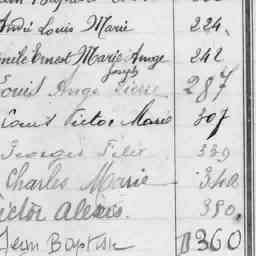 André Louis Marie 224.
Emile Ernest Marie Ange 242
Joseph
Louis Ange Pierre 287
Victor Marie 307
Georges Felix 339
Charles Marie 348
Victor Alexis. 350.
Jean Baptiste 360